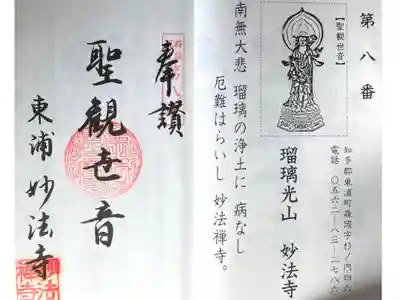 第八番
【聖観世音】
知多郡東浦町森岡字杉ノ内四六
電話 〇五六二-八三-一七八
瑠璃光山 妙法寺
南無大悲 瑠璃の浄土に 病なし
厄難はらいし 妙法禅寺。
奉讃
聖観世音
東浦妙法寺